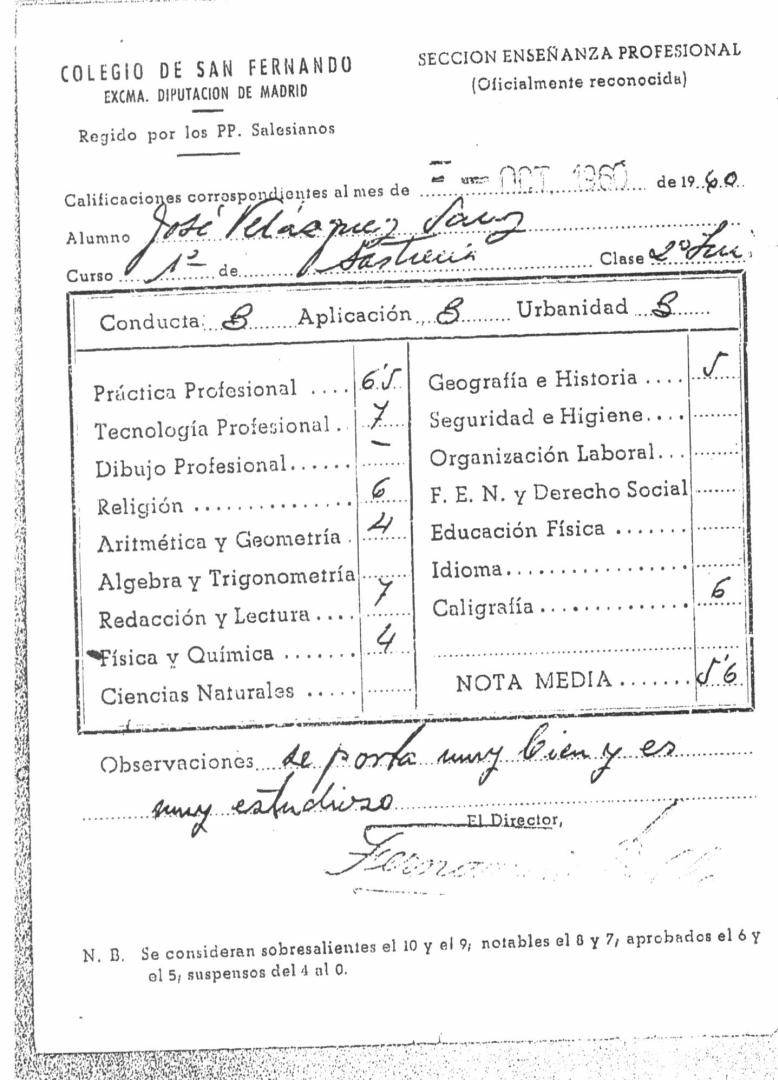 COLEGIO DE SAN FERNANDO
EXCMA. DIPUTACION DE MADRID
Regido por los PP. Salesianos
SECCION ENSEÑANZA PROFESIONAL
(Oficialmente reconocida)
Calificaciones correspondientes al mes de OCT. 1960 de 1960
Alumno José Velásquez Sanz
Curso 1º de Sastrería Clase 2º
Conducta: B Aplicación B Urbanidad B
Práctica Profesional .... 6'5
Tecnología Profesional . 7
Dibujo Profesional ...... –
Religión ............... 6
Aritmética y Geometría . 4
Algebra y Trigonometría
Redacción y Lectura .... 7
Física y Química ....... 4
Ciencias Naturales .....
Geografía e Historia .... 5
Seguridad e Higiene....
Organización Laboral...
F. E. N. y Derecho Social
Educación Física .......
Idioma................
Caligrafía .............. 6
NOTA MEDIA ....... 5'6
Observaciones se porta muy bien y es
muy estudioso
El Director,
N. B. Se consideran sobresalientes el 10 y el 9; notables el 8 y 7; aprobados el 6 y
el 5; suspensos del 4 al 0.